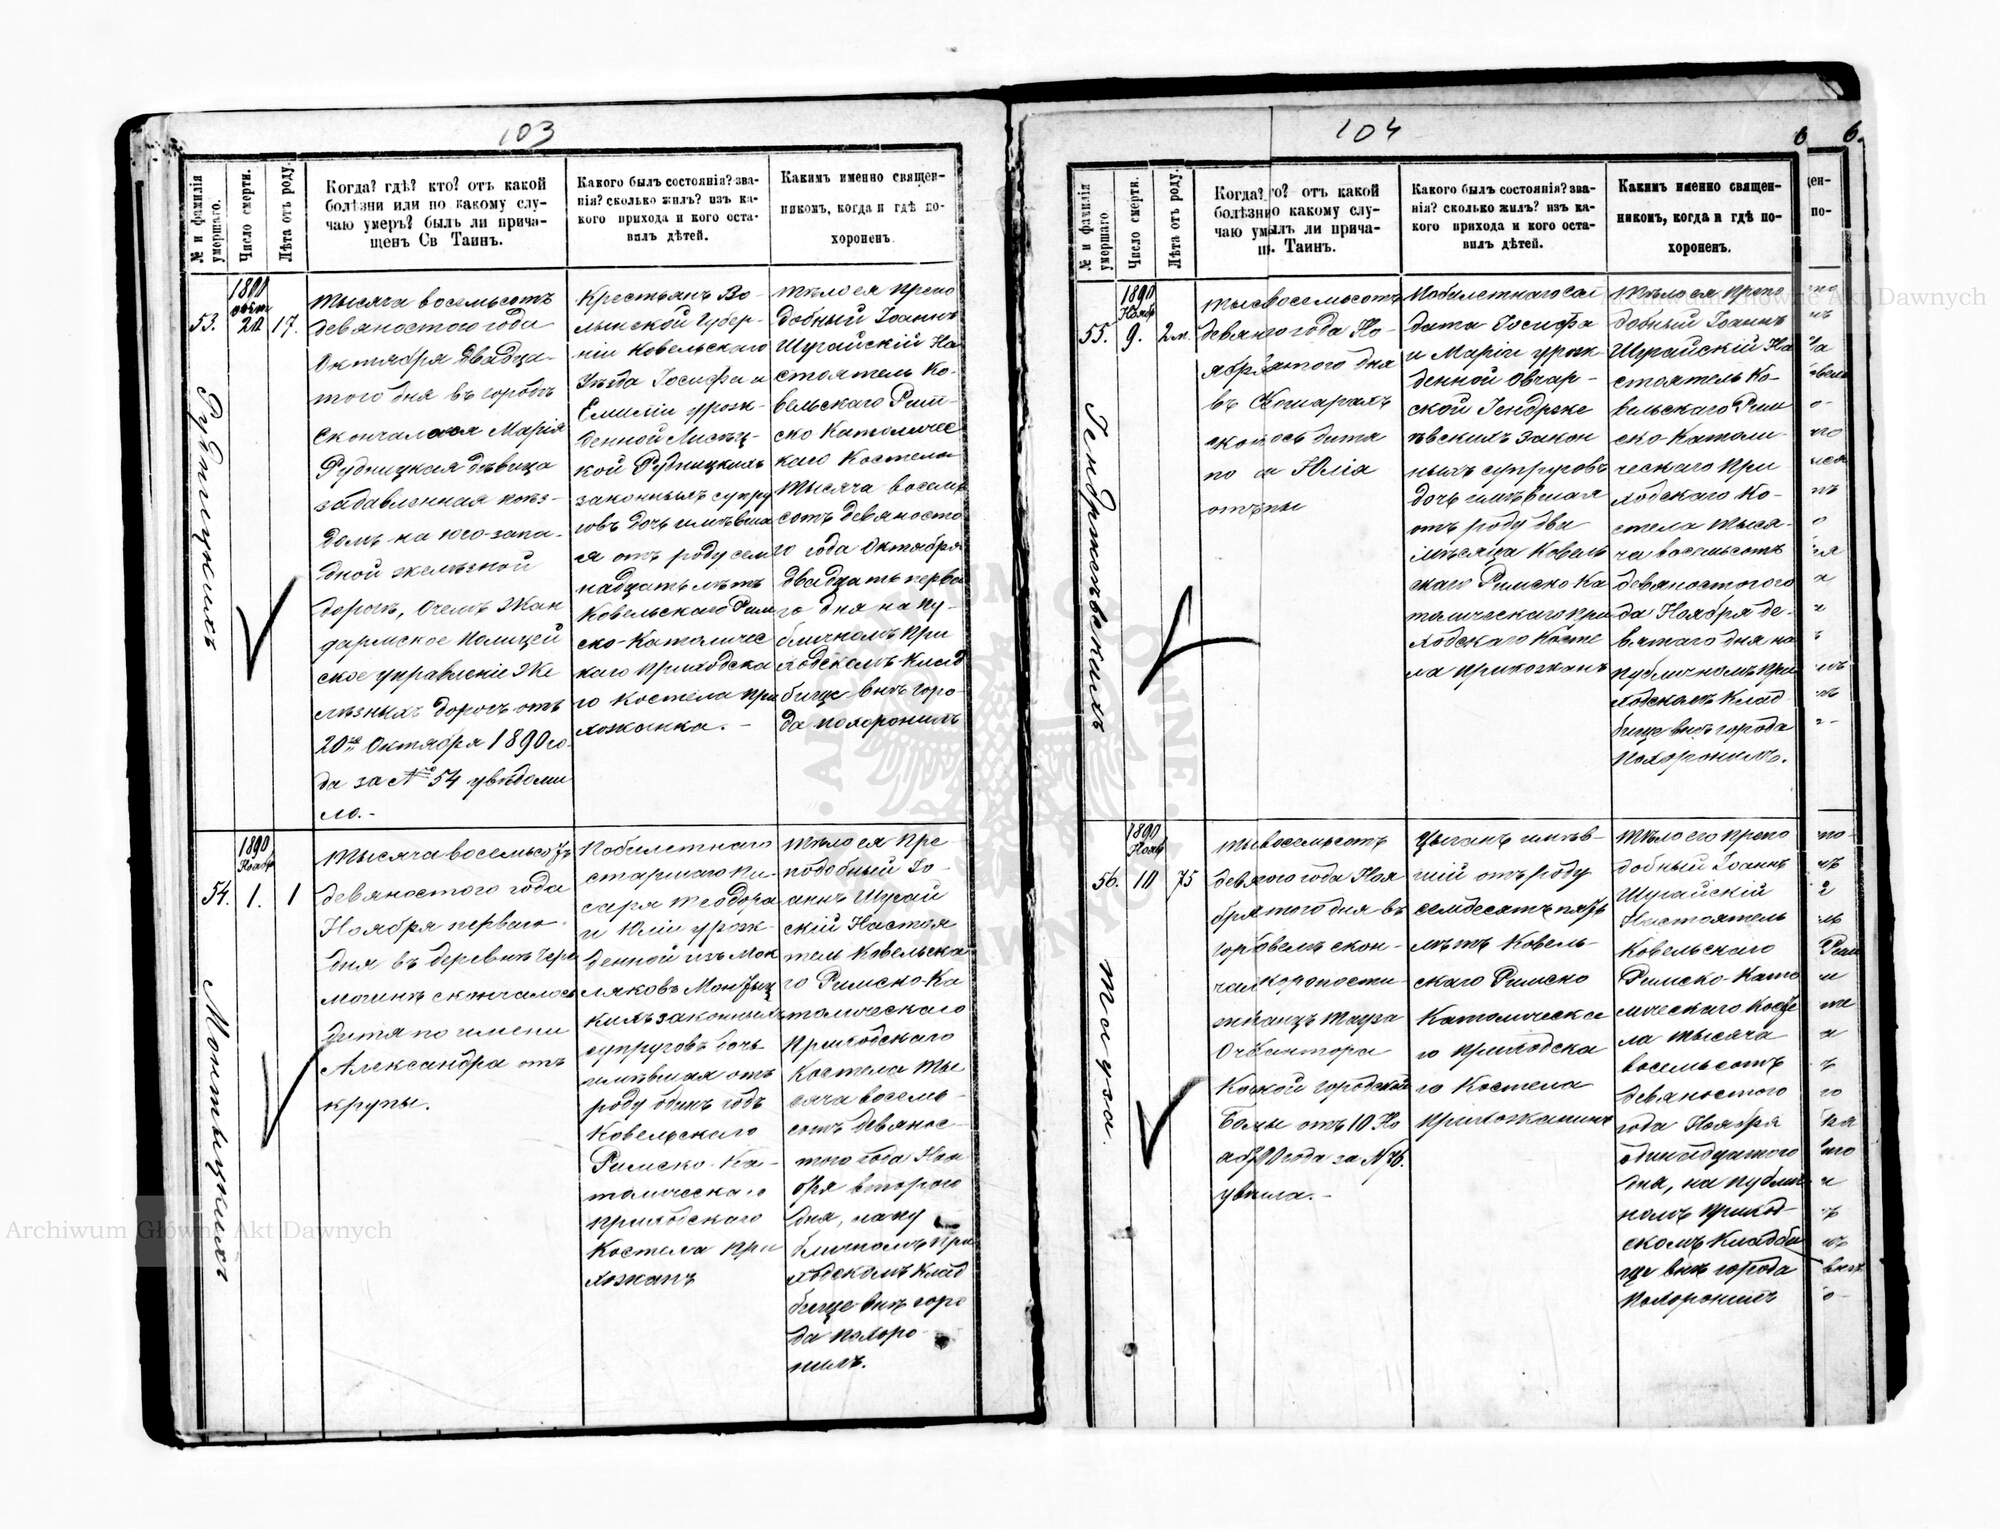 103
№ и фамилія умершаго.
Число смерти.
Лѣта отъ роду.
Когда? гдѣ? кто? отъ какой
болѣзни или по какому слу-
чаю умеръ? былъ ли прича-
щенъ Св Таинъ.
Какого былъ состоянія? зва-
нія? сколько жилъ? изъ ка-
кого прихода и кого оста-
вилъ дѣтей.
Каким именно священ-
никомъ, когда и гдѣ по-
хороненъ.
53.
Рудницкихъ
1890
20
17.
тысяча восемьсотъ
девяностого года
Октября двадца-
того дня въ городѣ
скончалася Марія
Рудницкая дѣвица
задавленная поѣз-
домъ на юго-запа-
дной желѣзной
дорогѣ, о чемъ Жан
дармское Полицей
ское управленіе Же
лѣзныхъ дорогъ отъ
20го Октября 1890 го-
да за № 54 увѣдоми
ло.-
Крестьянъ Во-
лынской Губер-
ніи Ковельскаго
Уѣзда Іосифа и
Емиліи урож-
денной
кой Рудницкихъ
законныхъ супру
говъ дочь имѣвша
я отъ роду сем
надцать лѣтъ
Ковельскаго Рим
ско-Католичес
каго Приходска
го Костела при
хожанка.-
тѣло ея препо
добный Іоаннъ
Шугайскій На
стоятель Ко-
вельскаго Рим-
ско Католичес
каго Костела
тысяча восемь
сотъ девяносто
го года Октября
двадцать перва
го дня на пу-
бличномъ при
ходскомъ клад
бище внѣ горо-
да похоронилъ
54.
Монтвицкихъ
1890
Ноябр
1.
1
тысяча восемьсотъ
девяностого года
Ноября перваго
дня въ деревнѣ Чере
скончалось
дитя по имени
Александра отъ
крупы.
Побилетнаго
старшаго пи-
саря Теодора
и Юліи урож-
денной изъ Мок
ляковъ
кихъ законныхъ
супруговъ дочь
имѣвшая отъ
роду одинъ годъ
Ковельскаго
Римско-Ка-
толическаго
приходскаго
Костела при
хожанъ
тѣло ея пре-
подобный Іо-
аннъ Шугай
скій Настоя
тель Ковельска-
го Римско-Ка
толическаго
Приходскаго
Костела ты
сяча восемь-
сотъ девянос-
того года Ноя
бря второго
дня, на пу
бличномъ при
ходскомъ клад
бище внѣ горо
да похоро-
нилъ.
104
№ и фамилія умершаго
Число смерти.
Лѣта отъ роду.
Когда? го? отъ какой
болѣзн о какому слу-
чаю ум ылъ ли прича-
щ Таинъ.
Какого былъ состоянія? зва-
нія? сколько жилъ? изъ ка-
кого прихода и кого оста-
вилъ дѣтей.
Какимъ именно священ-
никомъ, когда и гдѣ по-
хороненъ.
6
6.
щен-
по-
55.
Гендржеѣвскихъ
1890
Ноябр
9.
2 м.
тыс восемьсотъ
девян го года Но-
ября того дня
въ Кошарахъ
ско ось дитя
по и Юлія
отъ пы
Побилетнаго сол
дата Іосифа
и Маріи урож
денной Овчар-
ской Гендрже
ѣвскихъ закон
ныхъ супруговъ
дочь имѣвшая
отъ роду два
мѣсяца Ковель
скаго Римско Ка
толическаго При
ходскаго Косте
ла прихожанъ
тѣло ея препо
добный Іоаннъ
Шугайскій На
стоятель Ко-
вельскаго Рим
ско-Католи-
ческаго При
ходскаго Ко-
стела тыся-
ча восемьсотъ
девяностого го
да Ноября де-
вятаго дня на
публичномъ При
ходскомъ клад
бище внѣ города
похоронилъ.
56.
Тауза.
1890
Ноябр
10
75
ты восемьсотъ
девя ого года Ноя
бря того дня въ
гор овелѣ скон-
чал скоропости-
жн анцъ Тауза
О ч дактора
Ко кой городской
Боль отъ 10 Но
аб 90 года за № 76.
ув ила.-
цыганъ имѣв-
шій отъ роду
семдесятъ пять
лѣтъ Ковель-
скаго Римско
Католическа
го Приходска
го Костела
прихожанинъ
тѣло его препо
добный Іоаннъ
Шугайскій
Настоятель
Ковельскаго
Римско-Като
лическаго Косте
ла тысяча
восемьсотъ
девяностого
года Ноября
одинадцатого
дня, на публич
номъ приход-
скомъ кладби
ще внѣ города
похоронилъ
Archiwum Główne Akt Dawnych
Archiwum Główne Akt Dawnych